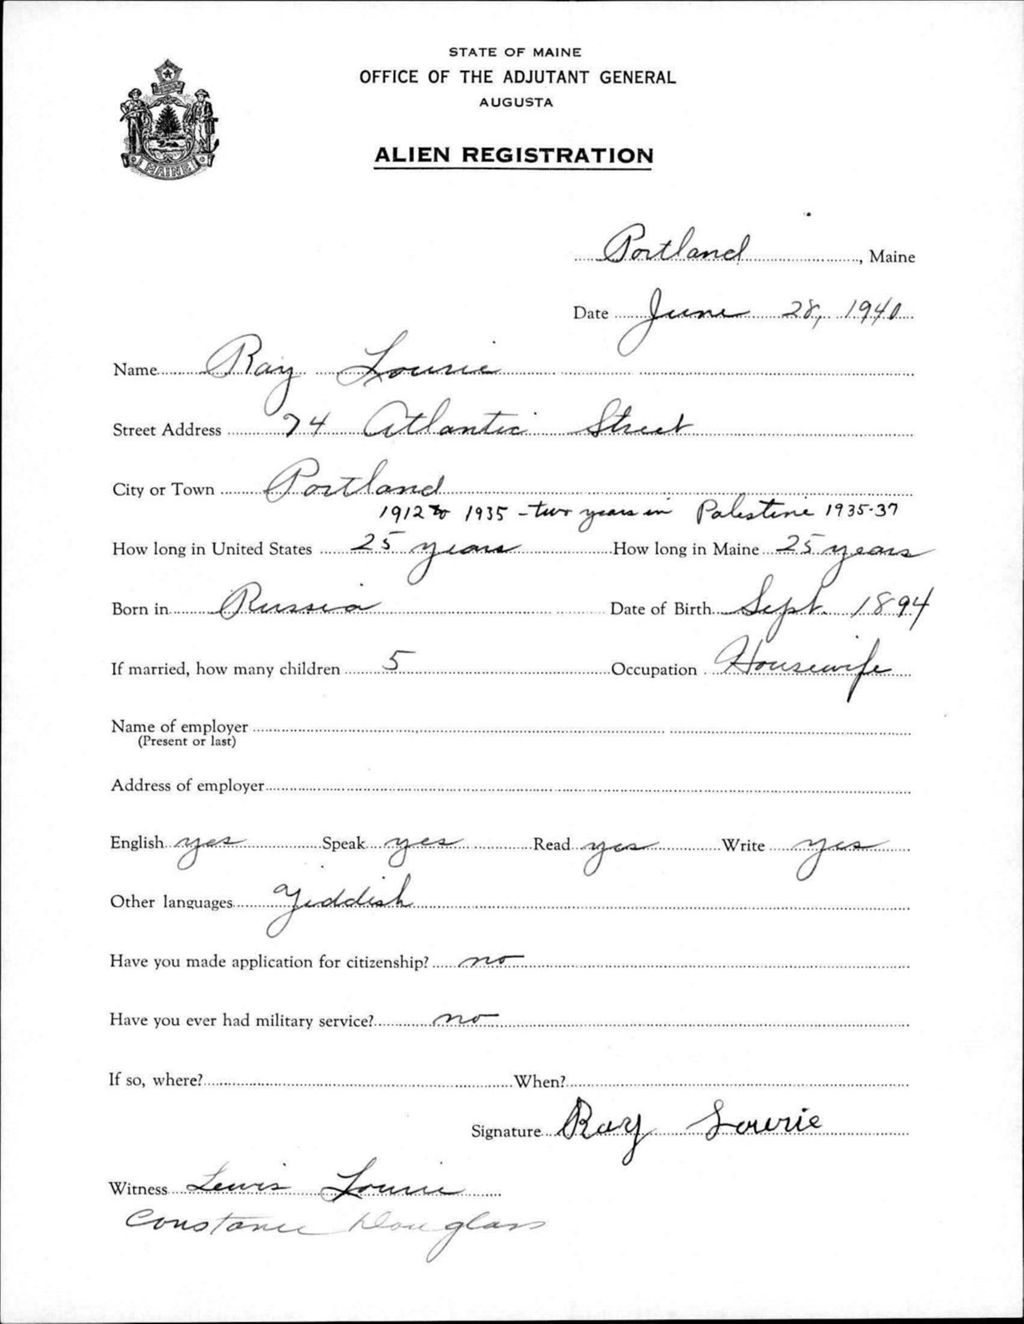 STATE OF MAINE
OFFICE OF THE ADJUTANT GENERAL
AUGUSTA
ALIEN REGISTRATION
MAINE
Portland, Maine
Date June 28, 1940
Name Ray Lourie
Street Address 74 Atlantic Street
City or Town Portland
1912 to 1935 - two years in Palestine 1935-37
How long in United States 25 years How long in Maine 25 years
Born in Russia Date of Birth Sept. 1894
If married, how many children 5 Occupation Housewife
Name of employer
(Present or last)
Address of employer
English yes Speak yes Read yes Write yes
Other languages Yiddish
Have you made application for citizenship? no
Have you ever had military service? no
If so, where? When?
Signature Ray Lourie
Witness Lewis Lourie
Constance Douglass